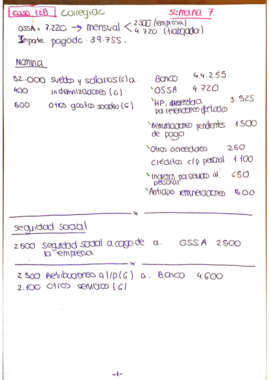 caso 16B corregido semana 7
OSSA = 7.220 → mensual < 2.500 (empresa)
4.720 (trabajador)
Importe pagado: 39.755.
Nómina
52.000 sueldos y salarios (G) a. Banco 44.255
400 indemnizaciones (G) OSSA 4.720
600 otros gastos sociales (G) HP, acreedora 3.525
por retenciones
Remuneraciones pendientes 1.500
de pago
Otros acreedores 250
créditos c/p personal 1.100
Ingresos por servicio al 650
personal
Anticipo remuneraciones 500
seguridad social
2500 Seguridad social a cargo de a. OSSA 2500
la empresa
2.500 Retribuciones a l/p (G) a. Banco 4600
2.100 otros servicios (G)
-1-